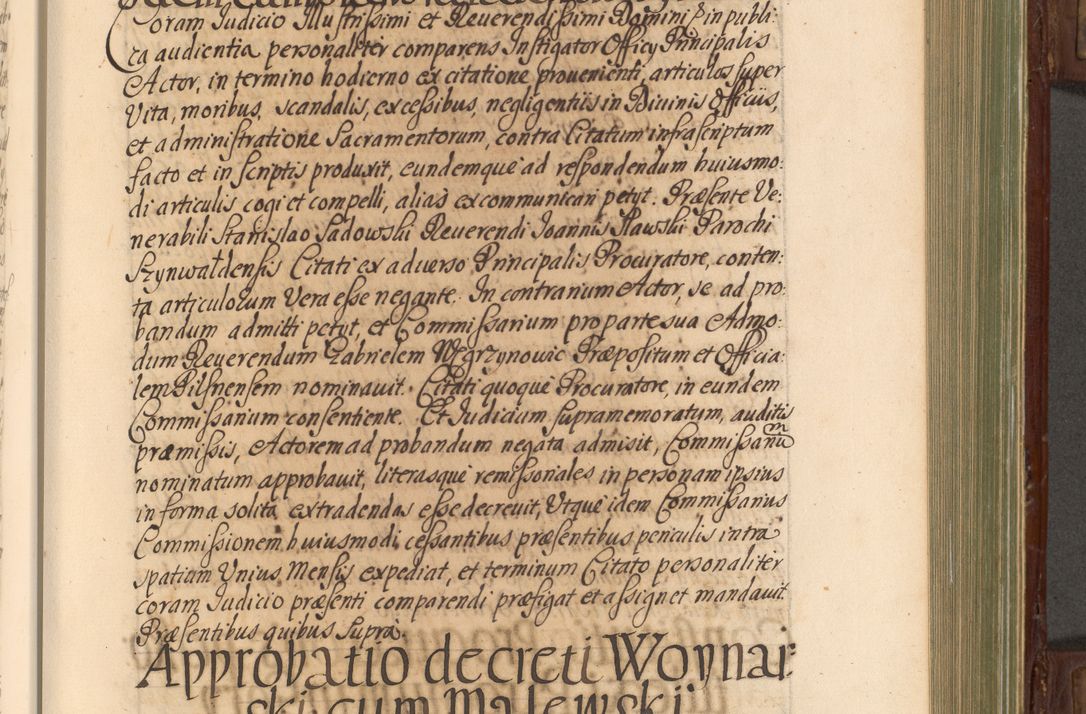 Coram Judicio Illustrissimi et Reuerendissimi Domini P in publi:
ca audientia personaliter comparens Instigator Officy Principalis
Actor, in termino hodierno ex citatione prouenienti, articulos super
Vita, moribus, scandalis, excessibus, negligentiis in Diuinis Officiis,
et administratione Sacramentorum, contra Citatum infrascriptum
facto et in scriptis produxit, eundemque ad respondendum huiusmo:
di articulis cogi et compelli, alias excommunicari petyt. Præsente Ve:
nerabili Stanislao Sadowski Reuerendi Joannis Rawski Parochi
Szynwałdensis Citati ex aduerso Principalis Procuratore, conten:
ta articulorum Vera esse negante. In contrarium Actor, se ad pro:
bandum admitti petyt, et Commissarium pro parte sua Admo:
dum Reuerendum Gabrielem Węgrzynowic Præpositum et Officia:
lem Pilsnensem nominauit. Citati quoque Procuratore, in eundem
Commissarium consentiente. Et Judicium supramemoratum, auditis
præmissis, Actorem ad probandum negata admisit, Commissariũm
nominatum approbauit, literasque remissoriales in personam ipsius
in forma solita extradendas esse decreuit, Utque idem Commissarius
Commissionem huiusmodi cessantibus præsentibus periculis intra
spatium Unius Mensis expediat, et terminum Citato personaliter
coram Judicio præsenti comparendi præfigat et assignet mandauit
Præsentibus quibus Supra.
Approbatio decreti Woynar:
ski cum Malewski